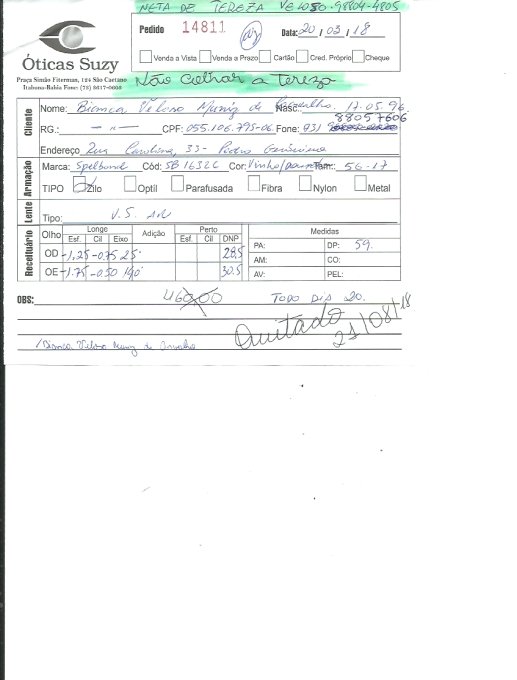 NETA DE TEREZA VELOSO. 98804-4805
Pedido 14811 Data: 20 / 03 / 18
Venda a Vista Venda a Prazo Cartão Cred. Próprio Cheque
Óticas Suzy
Praça Simão Fiterman, 124 São Caetano
Itabuna-Bahia Fone: (73) 3617-0603
Não Colhar a Tereza
Cliente
Nome: Bianca Veloso Muniz de Carvalho Nasc.: 17.05.96
RG.: CPF: 055.106.795-06 Fone: 88057606
Endereço Rua Carolina, 33 - Pedro Gerônimo
Armação
Marca: Spelbound Cód: SB 1632C Cor: Vinho Tam: 56-17
TIPO Zilo Optil Parafusada Fibra Nylon Metal
Lente
Tipo: V.S.
Receituário
Olho Longe Adição Perto DNP Medidas
Esf. Cil Eixo Esf. Cil
OD -1,25 -0,75 25° 28,5 PA: DP: 59.
AM: CO:
OE -1,75 -0,50 30.5 AV: PEL:
OBS: 460,00 TODO DIA 20.
Quitado 21/08/18
Bianca Veloso Muniz de Carvalho